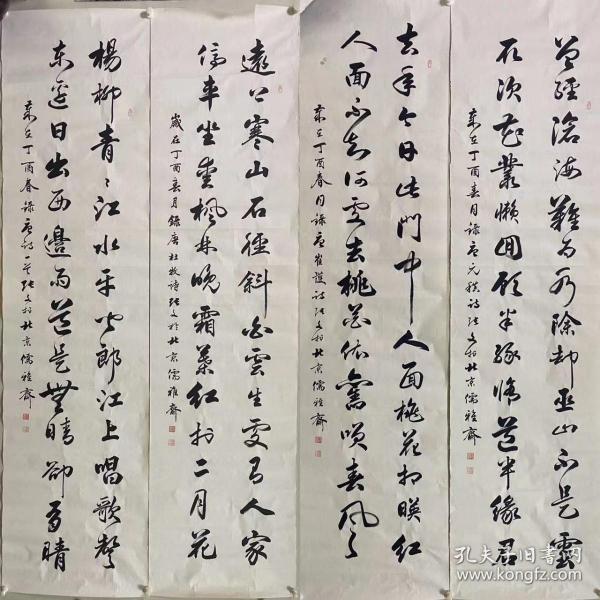 曾经沧海难为水除却巫山不是云
取次花丛懒回顾半缘修道半缘君
岁在丁酉春月录唐元稹诗张文於北京儒雅斋
去年今日此门中人面桃花相映红
人面不知何处去桃花依旧笑春风
岁在丁酉春月录唐崔护诗张文於北京儒雅斋
遠上寒山石徑斜白雲生處有人家
停車坐愛楓林晚霜葉紅於二月花
歲在丁酉春月錄唐杜牧詩张文於北京儒雅齋
楊柳青青江水平闻郎江上唱歌聲
东邊日出西邊雨道是無晴卻有晴
歲在丁酉春錄唐诗一首张文於北京儒雅齋
孔夫子旧书网
www.kongfz.com